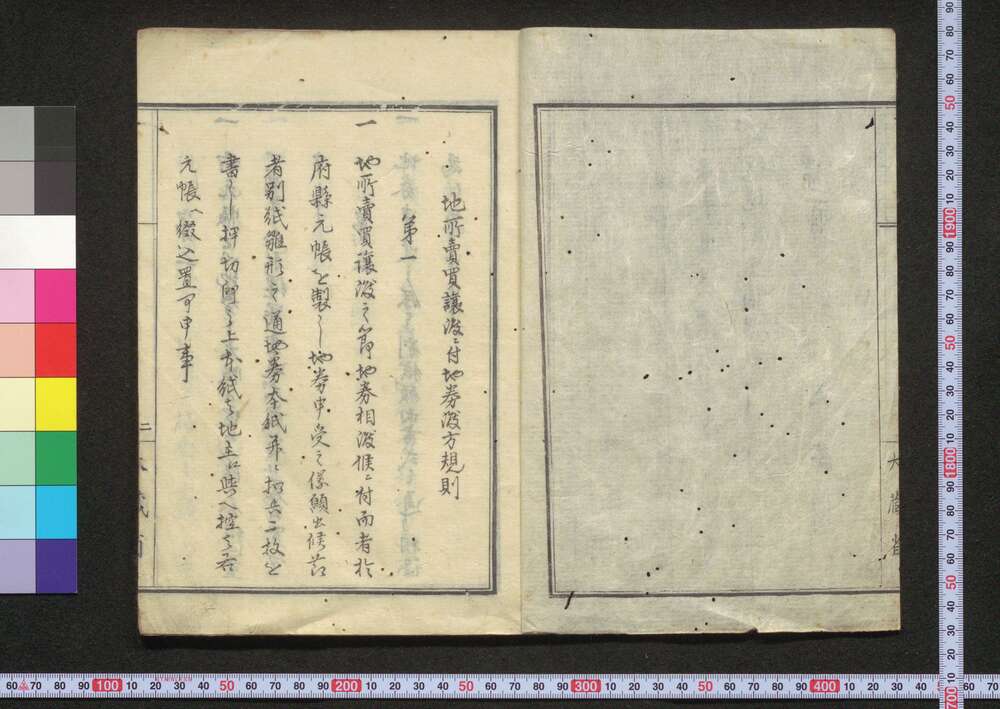 地所賣買讓渡ニ付地券渡方規則
第一
一
地所賣買讓渡之節地券相渡候ニ付而者於
府縣元帳を製し地券申受之儀願出候節
者別紙雛形之通地券本紙并ニ扣共二枚を
書し押切印之上本紙を地主江與へ控を右
元帳へ綴込置可申事
二
大蔵省